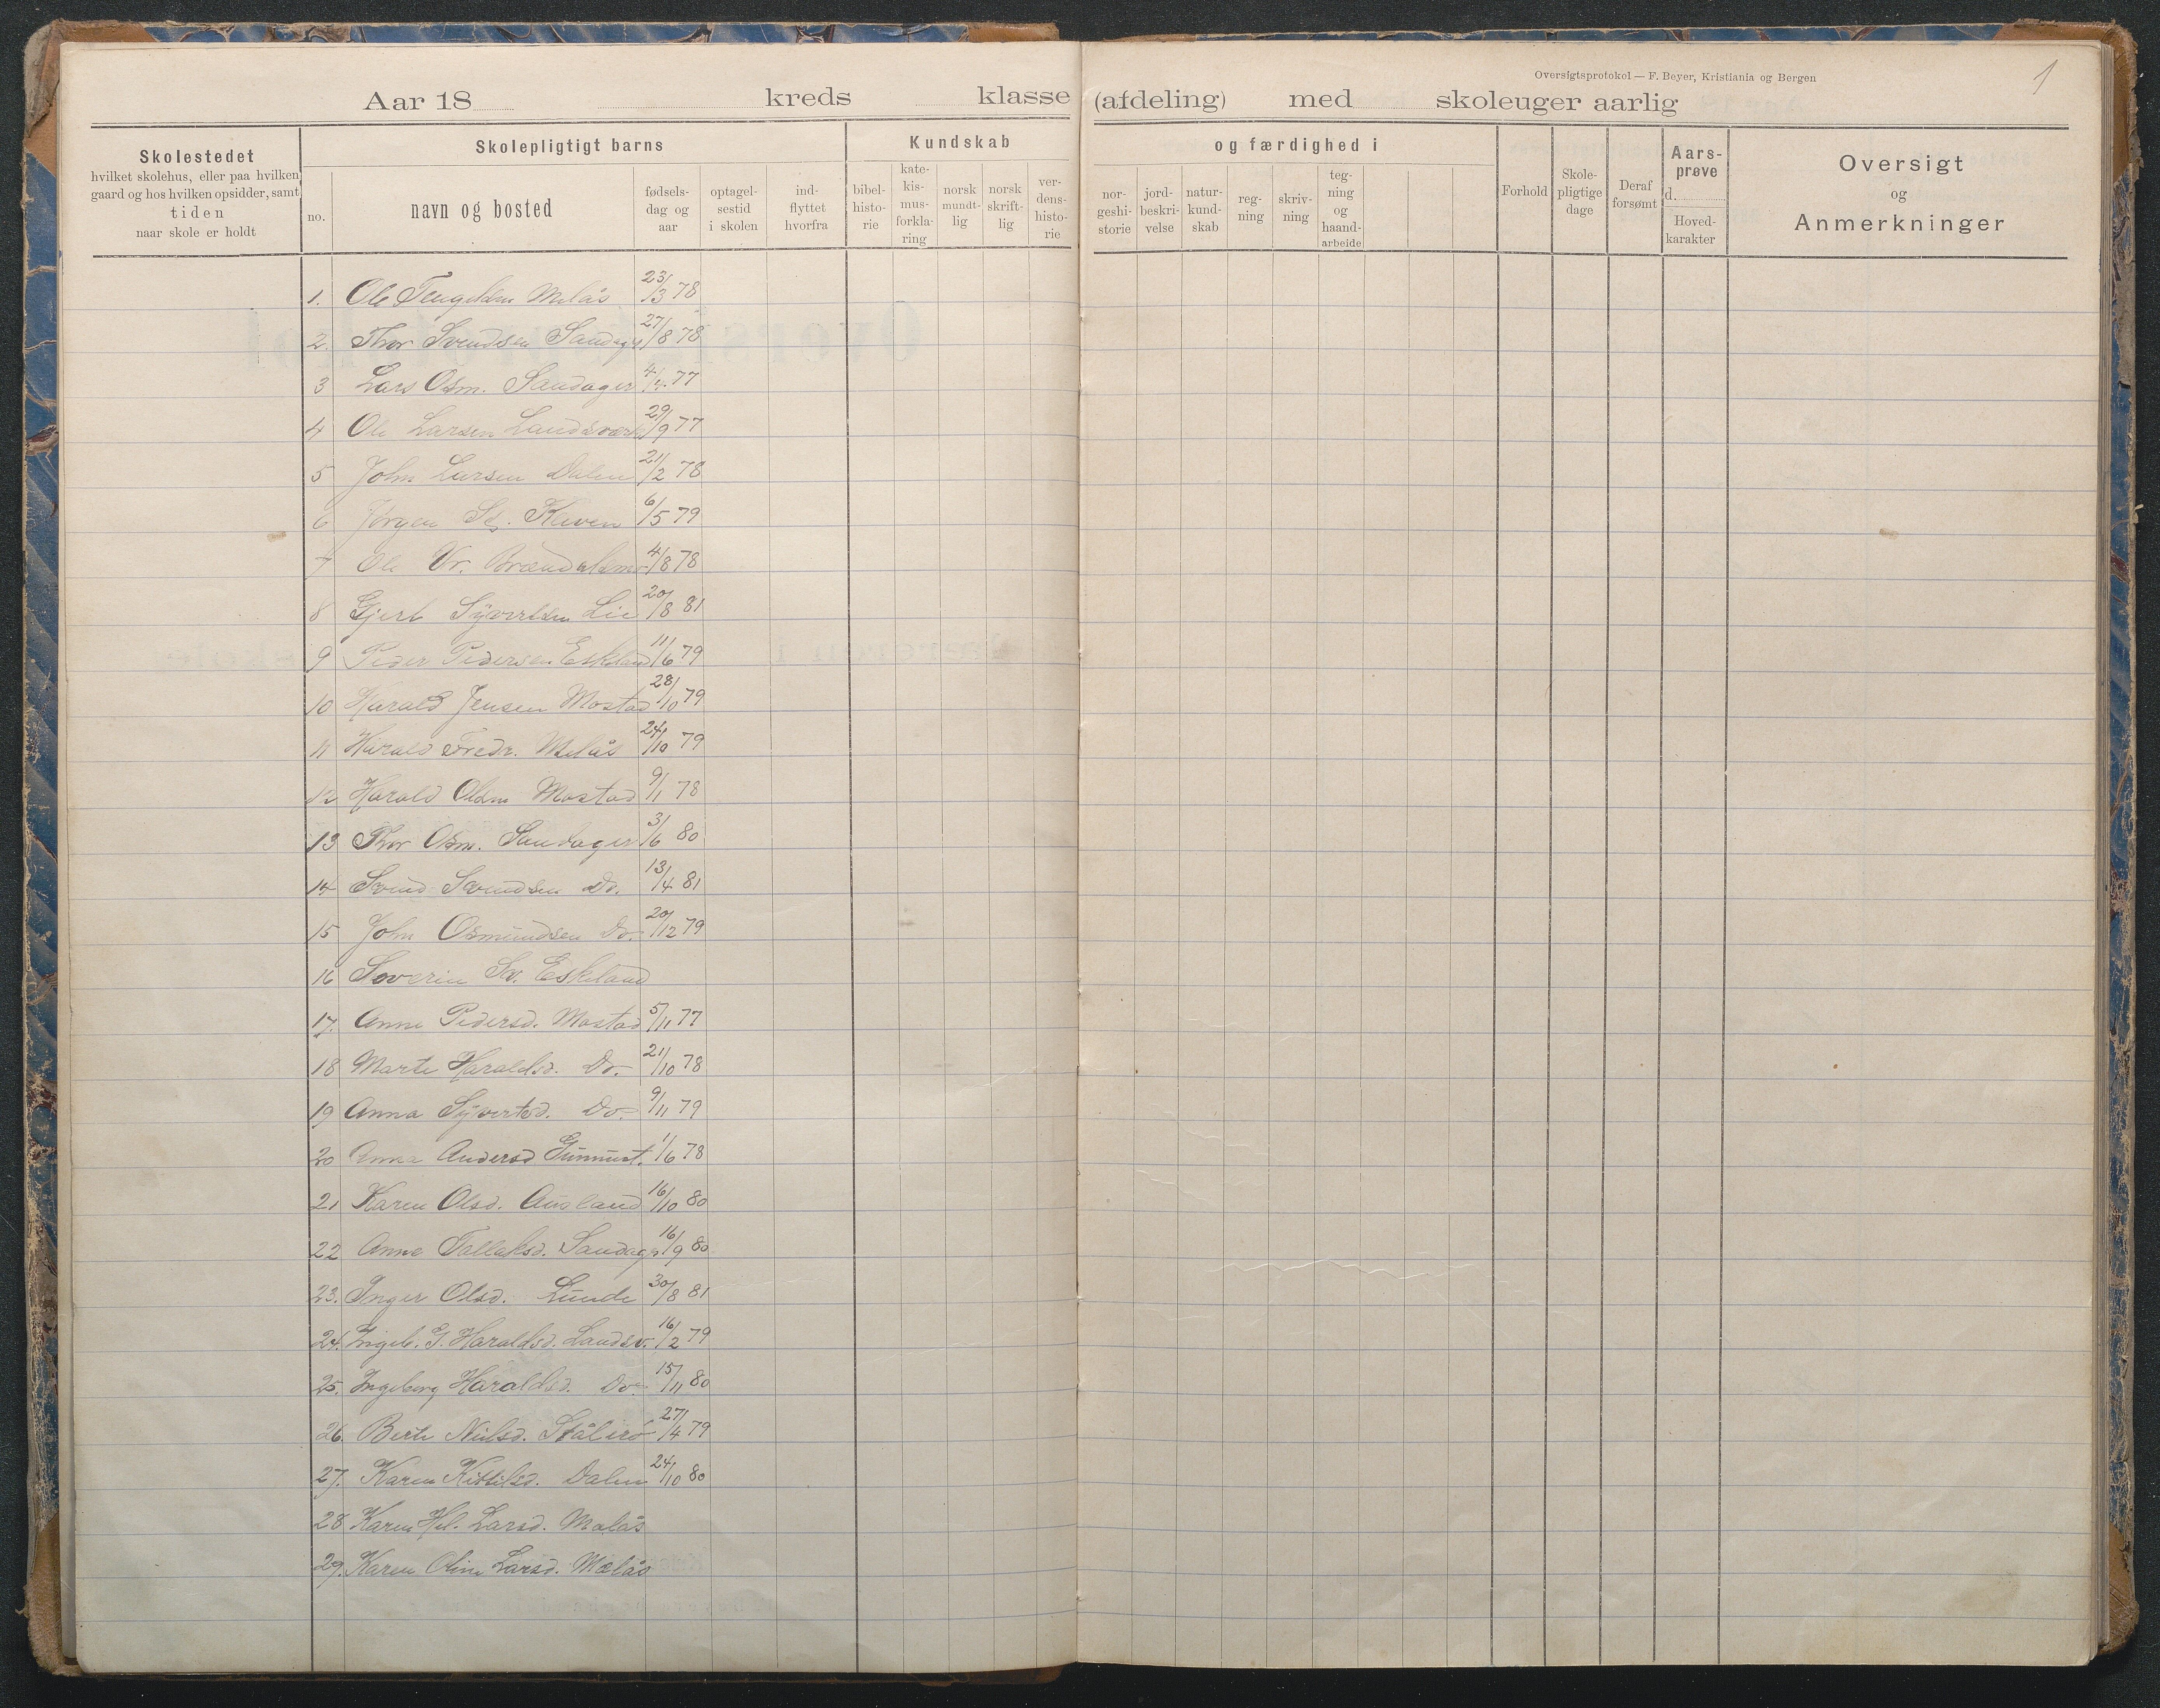 Oversigtsprotokol — F. Beyer, Kristiania og Bergen
1
Aar 18 kreds klasse (afdeling) med skoleuger aarlig
Skolestedet
hvilket skolehus, eller paa hvilken
gaard og hos hvilken opsidder, samt
tiden
naar skole er holdt
Skolepligtigt barns
no.
navn og bosted
fødsels-
dag og
aar
optagel-
sestid
i skolen
ind-
flyttet
hvorfra
Kundskab
bibel-
histo-
rie
kate-
kis-
mus-
forkla-
ring
norsk
mundt-
lig
norsk
skrift-
lig
ver-
dens-
histo-
rie
og færdighed i
nor-
geshi-
storie
jord-
beskri-
velse
natur-
kund-
skab
reg-
ning
skriv-
ning
teg-
ning
og
haand-
arbeide
Forhold
Skole-
pligtige
dage
Deraf
forsømt
Aars-
prøve
d.
Hoved-
karakter
Oversigt
og
Anmerkninger
1. Ole Melås 23/3 78
2. Thor Svendsen Sandag 27/8 78
3 Lars Osm. Sandager 4/4 77
4 Ole Larsen Landsverk 29/9 77
5 John Larsen Dalen 21/2 78
6 Jørgen Kleven 6/5 79
7 Ole 4/8 78
8 Gjert Syvertsen Lie 20/8 81
9 Peder Pedersen Eskeland 11/6 79
10 Harald Jensen Mostad 28/10 79
11 Harald Fredr. Melås 24/10 79
12 Harald Olsen Mostad 9/1 78
13 Thor Osm. Sandager 3/6 80
14 Svend Svendsen Do. 13/4 81
15 John Osmundsen Do. 20/12 79
16 Soverin Sv. Eskeland
17. Anne Pedersd. Mostad 5/11 77
18 Marte Haraldsd. Do. 21/10 78
19 Anna Syvertsd. Do. 9/11 79
20 Anna Andersd 1/6 78
21 Karen Olsd. Ausland 16/10 80
22 Anne Tallaksd. Sandag 16/9 80
23. Inger Olsd. Lunde 30/8 81
24. Ingeb. G. Haraldsd. Landsv. 16/2 79
25. Ingeborg Haraldsd. Do. 15/11 80
26. Berte Nielsd. 27/4 79
27. Karen Kittilsd. Dalen 24/10 80
28 Karen Hel. Larsd. Melås
29. Karen Oline Larsd. Melås